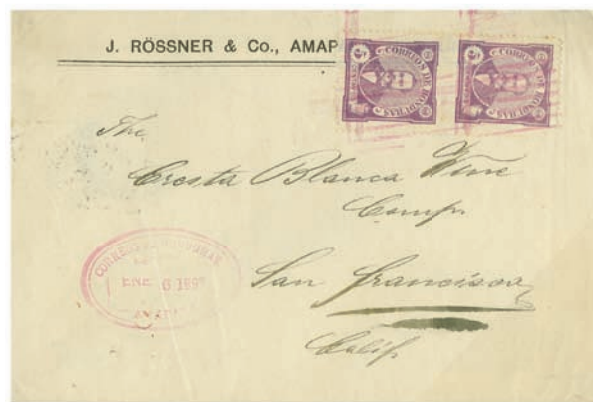 J. RÖSSNER & Co., AMAP
5 CORREOS DE HONDURAS 5
5 CORREOS DE HONDURAS 5
The
Cresta Blanca Wine
Comp.
San Francisco
Calif
CORREOS HONDURAS
ENE 6 189